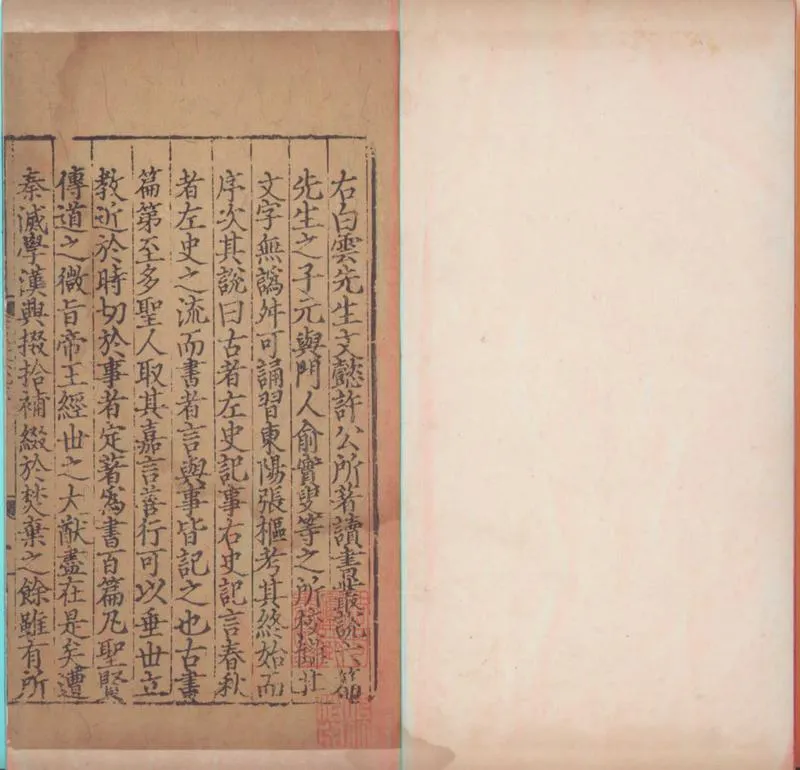 右白雲先生文懿許公所著讀書叢說六
先生之子元與門人俞實叟等之所校讎其
文字無譌舛可誦習東陽張樞考其終始而
序次其說曰古者左史記事右史記言春秋
者左史之流而書者言與事皆記之也古書
篇第至多聖人取其嘉言善行可以垂世立
教近於時切於事者定著為書百篇乃聖賢
傳道之微旨帝王經世之大猷盡在是矣遭
秦滅學漢興掇拾補綴於焚棄之餘雖有所